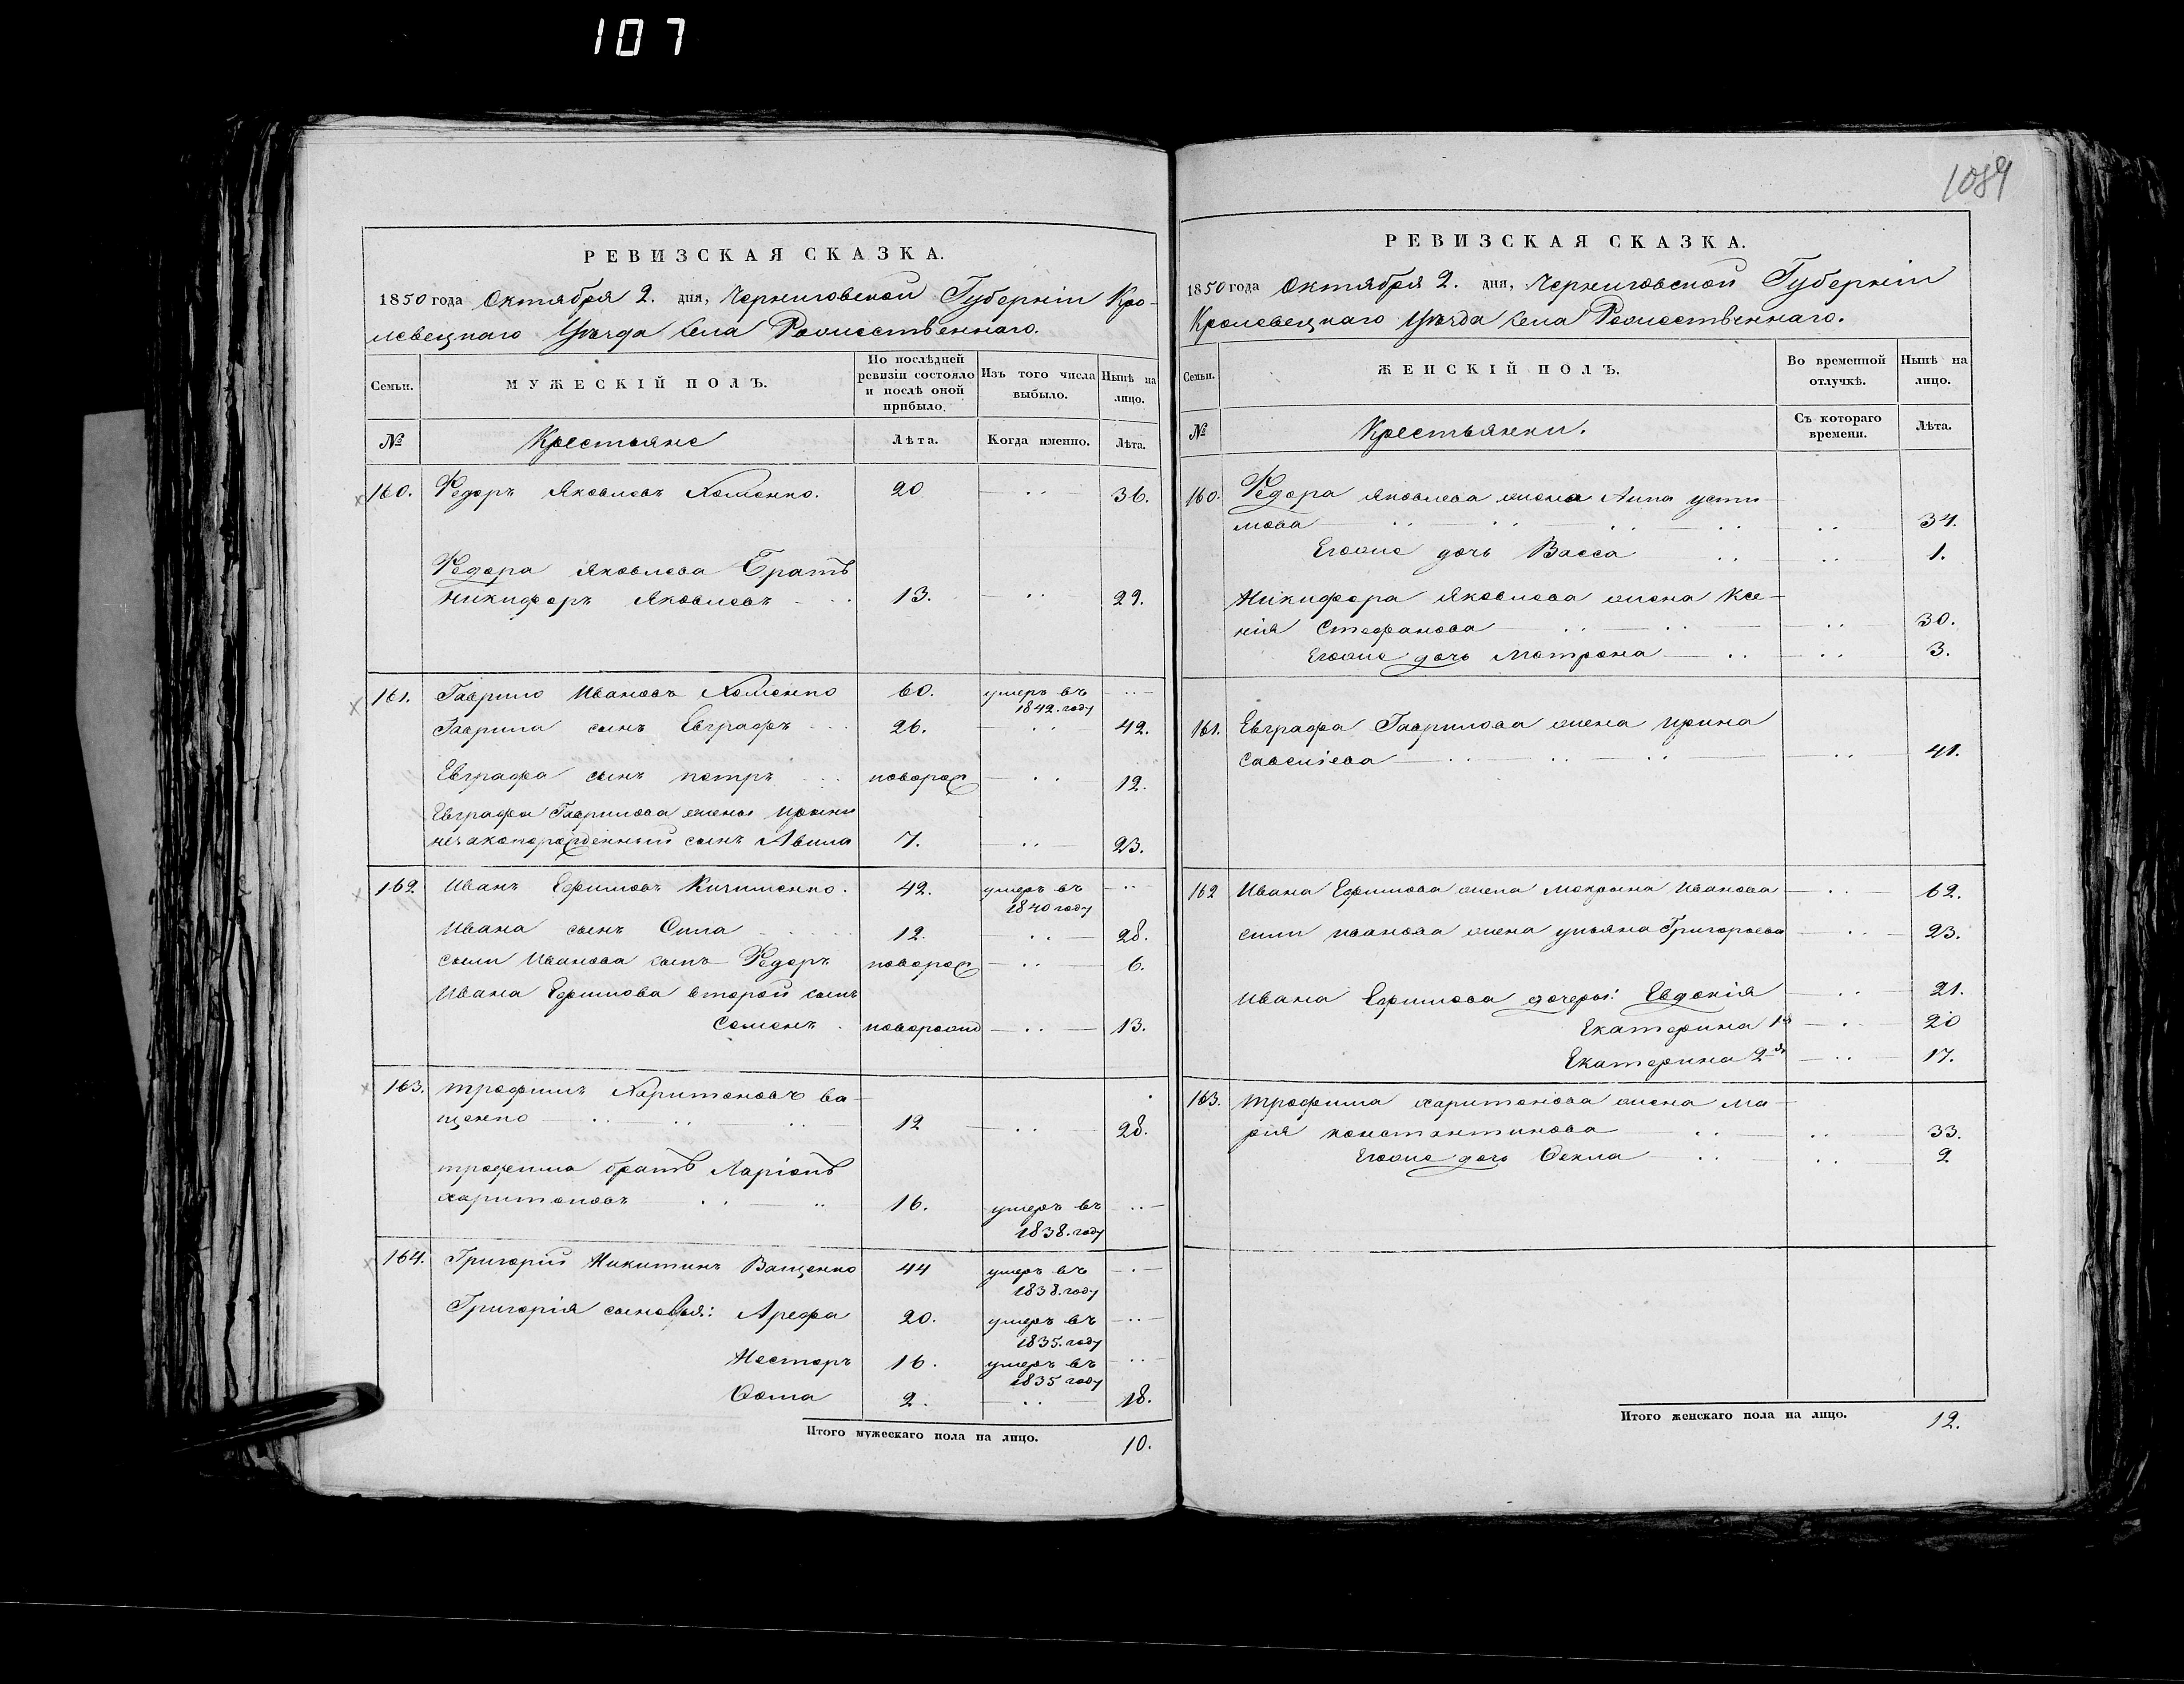 107
1089
РЕВИЗСКАЯ СКАЗКА.
1850 года Октября 2. дня, Черниговской Губерніи Кро-
левецкаго Уѣзда села Рожественнаго.
Семьи. МУЖЕСКІЙ ПОЛЪ. По послѣдней ревизіи состояло и послѣ оной прибыло. Изъ того числа выбыло. Нынѣ на лицо.
№ Крестьяне Лѣта. Когда именно. Лѣта.
160. Федоръ Яковлевъ Хоменко. 20 36.
Федора Яковлева Братъ
Никифоръ Яковлевъ 13. 29.
161. Гаврило Ивановъ Хоменко 60. умеръ въ
1842. году
Гаврила сынъ Евграфъ 26. 42.
Евграфа сынъ петръ новорож 12.
Евграфа Гаврилова жены Ирины
незаконорожденный сынъ Авила 7. 23.
162 Иванъ Ефимовъ Кичименко. 42. умеръ въ
1840 году
Ивана сынъ Сила 12. 28.
силы Иванова сынъ Федоръ новорож 6.
Ивана Ефимова второй сынъ
Семенъ новорожд 13.
163. трофимъ Харитоновъ ва-
щенко 12 28.
трофима братъ Ларіонъ
харитоновъ 16. умеръ въ
1838. году
164. Григорій Никитинъ Ващенко 44 умеръ въ
1838. году
Григорія сыновья: Арефа 20. умеръ въ
1835. году
Несторъ 16. умеръ въ
1835 году
Ѳома 2. 18.
Итого мужескаго пола на лицо. 10.
РЕВИЗСКАЯ СКАЗКА.
1850 года Октября 2. дня, Черниговской Губерніи
Кролевецкаго Уѣзда села Рожественнаго.
Семьи. ЖЕНСКІЙ ПОЛЪ. Во временной отлучкѣ. Нынѣ на лицо.
№ Крестьянки. Съ котораго времени. Лѣта.
160. Федора Яковлева жена Анна усти-
мова 34.
Егоже дочь Васса 1.
Никифора Яковлева жена Ксе-
нія Стефанова 30.
Егоже дочь Матрона 3.
161. Евграфа Гаврилова жена Ирина
савеліева 41.
162 Ивана Ефимова жена Мокрына Иванова 62.
силы иванова жена ульяна Григорьева 23.
Ивана Ефимова дочери: Евдокія 21.
Екатерина 1я 20
Екатерина 2я 17.
163. трофима харитонова жена Ма-
рія константинова 33.
Егоже дочь Ѳекла 9.
Итого женскаго пола на лицо. 12.